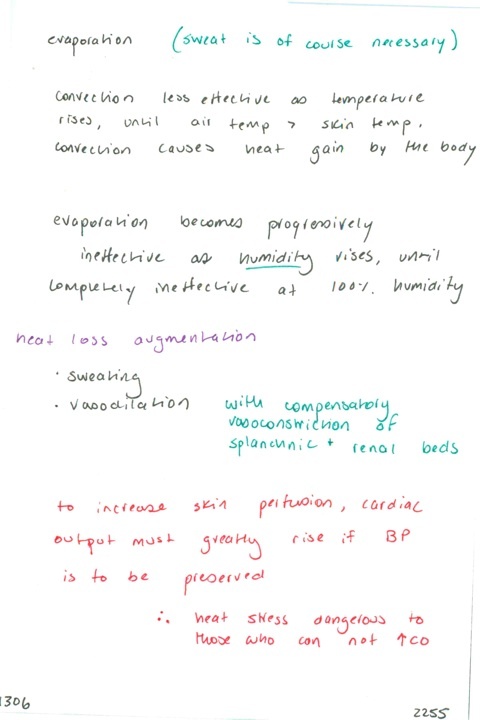 evaporation (sweat is of course necessary)
convection less effective as temperature
rises, until air temp > skin temp.
convection causes heat gain by the body
evaporation becomes progressively
ineffective as humidity rises, until
completely ineffective at 100% humidity
heat loss augmentation
· sweating
· vasodilation with compensatory
vasoconstriction of
splanchnic + renal beds
to increase skin perfusion, cardiac
output must greatly rise if BP
is to be preserved
∴ heat stress dangerous to
those who can not ↑CO
1306
2255